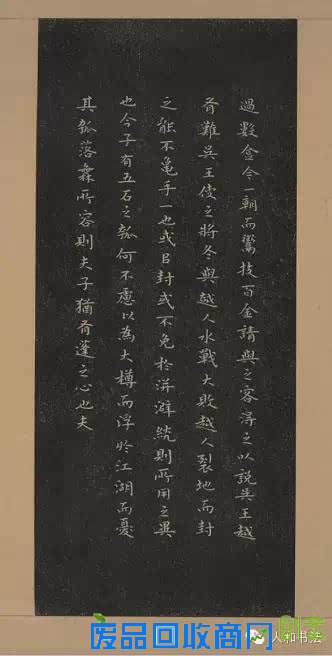 過數金今一朝而鬻技百金請與之客得之以說吳王越
有難吳王使之將冬與越人水戰大敗越人裂地而封
之能不龜手一也或以封或不免於洴澼絖則所用之異
也今子有五石之瓠何不慮以為大樽而浮於江湖而憂
其瓠落無所容則夫子猶有蓬之心也夫
人和书法
废品回收商网